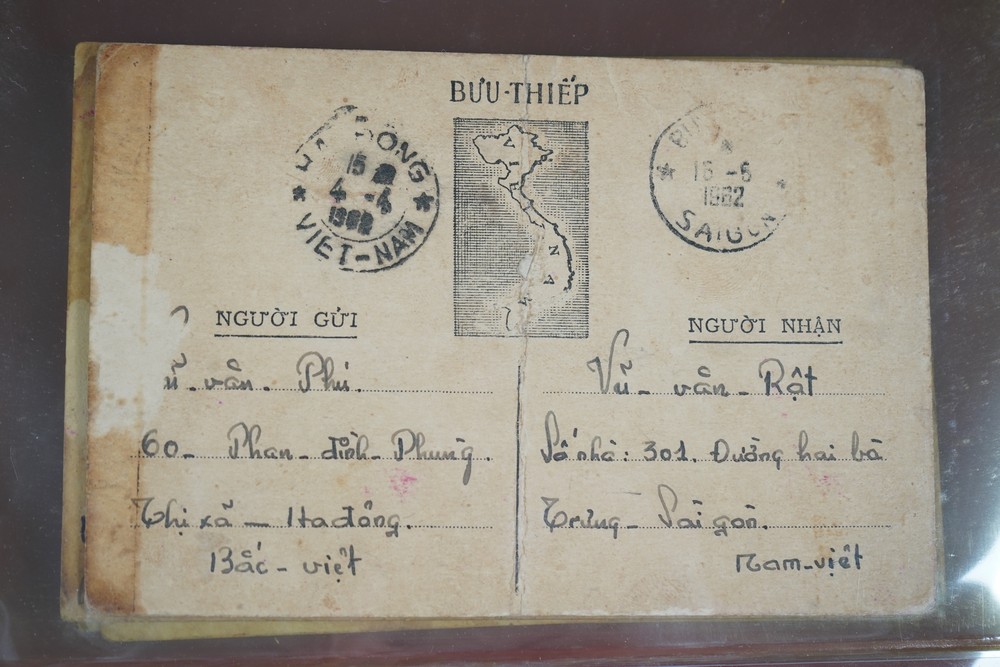 BƯU-THIẾP
HÀ ĐÔNG
15
4 -4
1962
★ VIỆT-NAM ★
16 -6
1962
★ SAIGON ★
NGƯỜI GỬI
văn. Phú.
60- Phan- đình- Phùng.
Thị xã - Hađông.
Bắc - việt
NGƯỜI NHẬN
Vũ - văn - Rật
Số nhà: 301. Đường hai bà
Trưng - Sài gòn.
Nam-việt